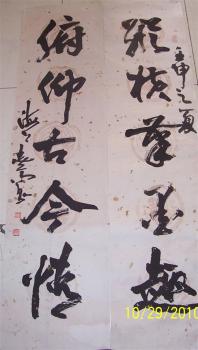 壬申之夏
縱横筆墨趣
俯仰古今情
10/29/2010